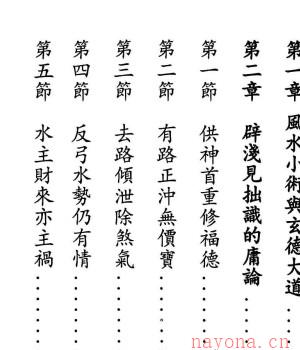 第一章 風水小術與玄德大道
第二章 辟淺見拙識的庸論……
第一節 供神首重修福德……
第二節 有路正沖無價寶……
第三節 去路傾泄除煞氣……
第四節 反弓水勢仍有情……
第五節 水主財來亦主禍……
nayona.cn